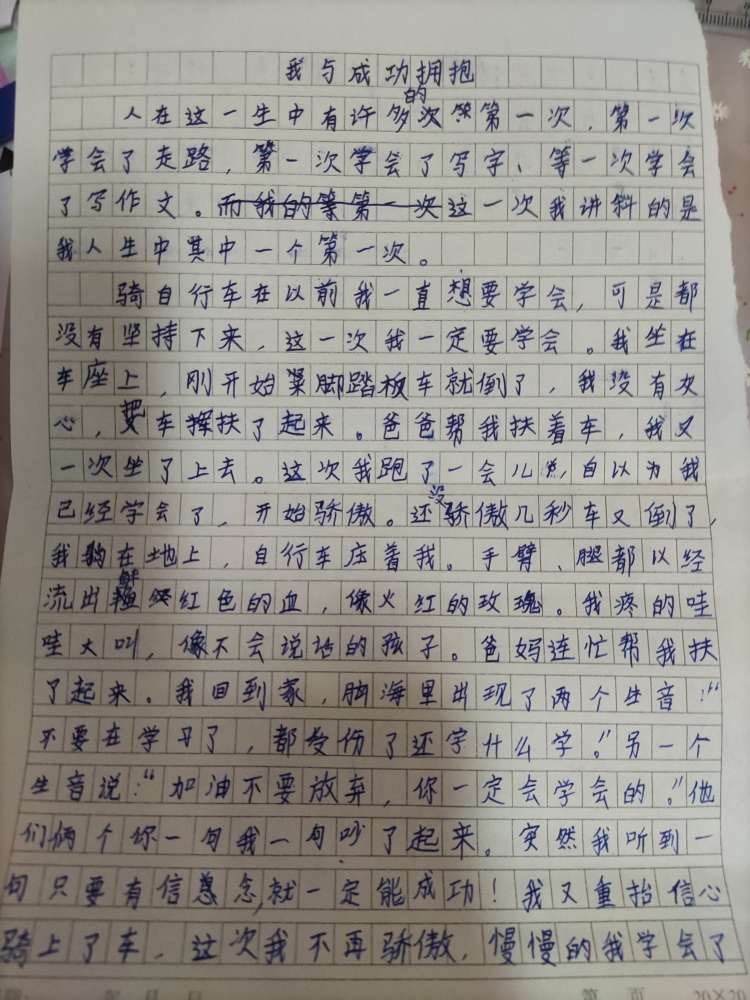 我与成功拥抱
人在这一生中有许多的次第一次，第一次
学会了走路，第一次学会了写字、等一次学会
了写作文。而我的等第一次这一次我讲斜的是
我人生中其中一个第一次。
骑自行车在以前我一直想要学会，可是都
没有坚持下来，这一次我一定要学会。我坐在
车座上，刚开始脚踏板车就倒了，我没有灰
心，把车扶了起来。爸爸帮我扶着车，我又
一次坐了上去。这次我跑了一会儿，自以为我
已经学会了，开始骄傲。还没骄傲几秒车又倒了，
我在地上，自行车压着我。手臂、腿都以经
流出鲜红色的血，像火红的玫瑰。我疼的哇
哇大叫，像不会说话的孩子。爸妈连忙帮我扶
了起来。我回到家，脑海里出现了两个生音：“
不要在学习了，都受伤了还学什么学。”另一个
生音说：“加油不要放弃，你一定会学会的。”他
们俩个你一句我一句吵了起来。突然我听到一
句只要有信念，就一定能成功！我又重抬信心
骑上了车，这次我不再骄傲，慢慢的我学会了
年 月 日 第 页 20×20